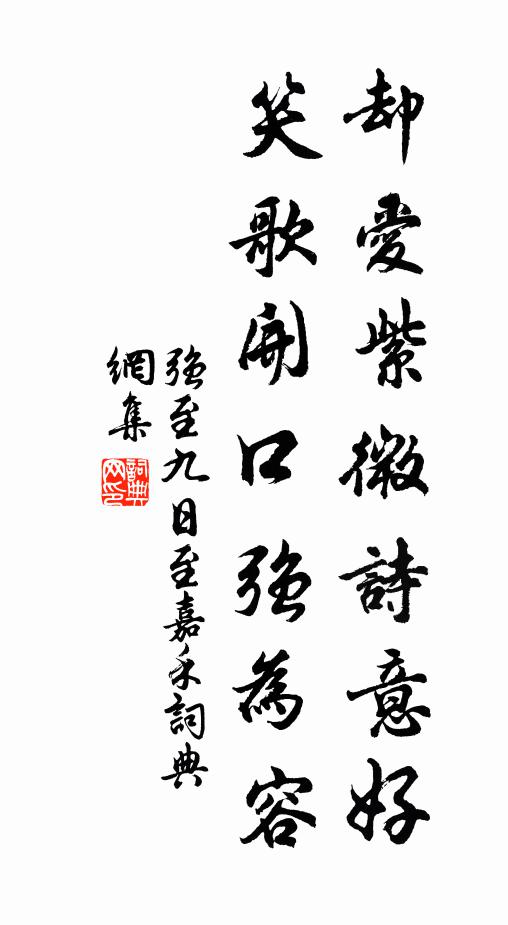 却愛紫微詩意好
笑歌開口強為容
強至九日至嘉禾詞典
網集
詞典
网印